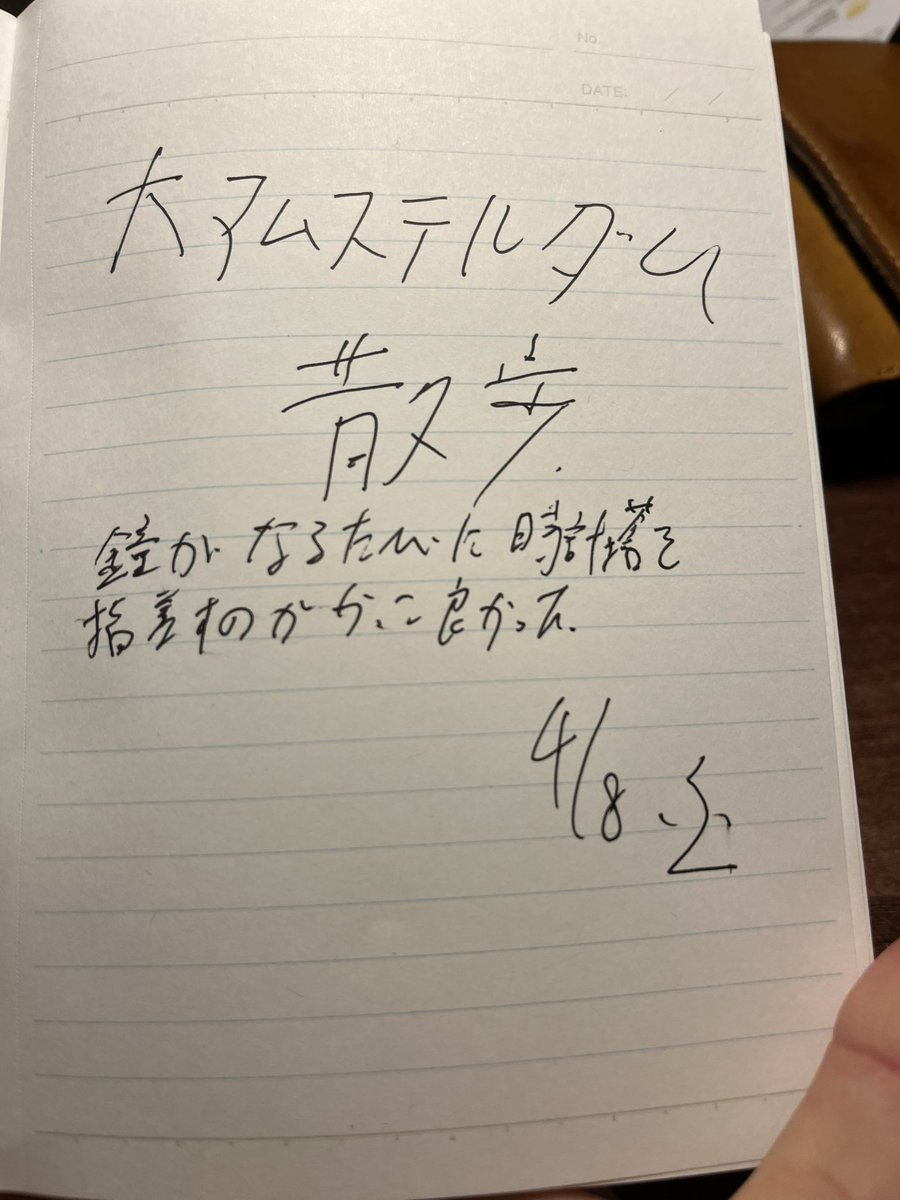 No.
DATE: / /
大アムステルダム
散歩.
鐘がなるたびに時計塔を
指差すのがかっこ良かった.
4/8